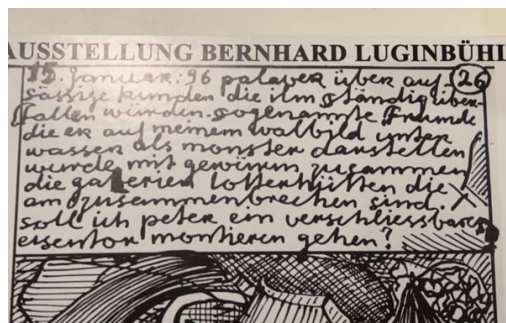 AUSSTELLUNG BERNHARD LUGINBÜHL
15. Januar: 96 palaver über auf 26
sässige kunden die ihm ständig über-
fallen würden. sogenannte freunde
die er auf meinem walbild unter
wasser als monster darstellen
würde mit gewürm zusammen
die galerien lotterhütten die
am zusammenbrechen sind.
soll ich peter ein verschliessbares
eisentor montieren gehen?